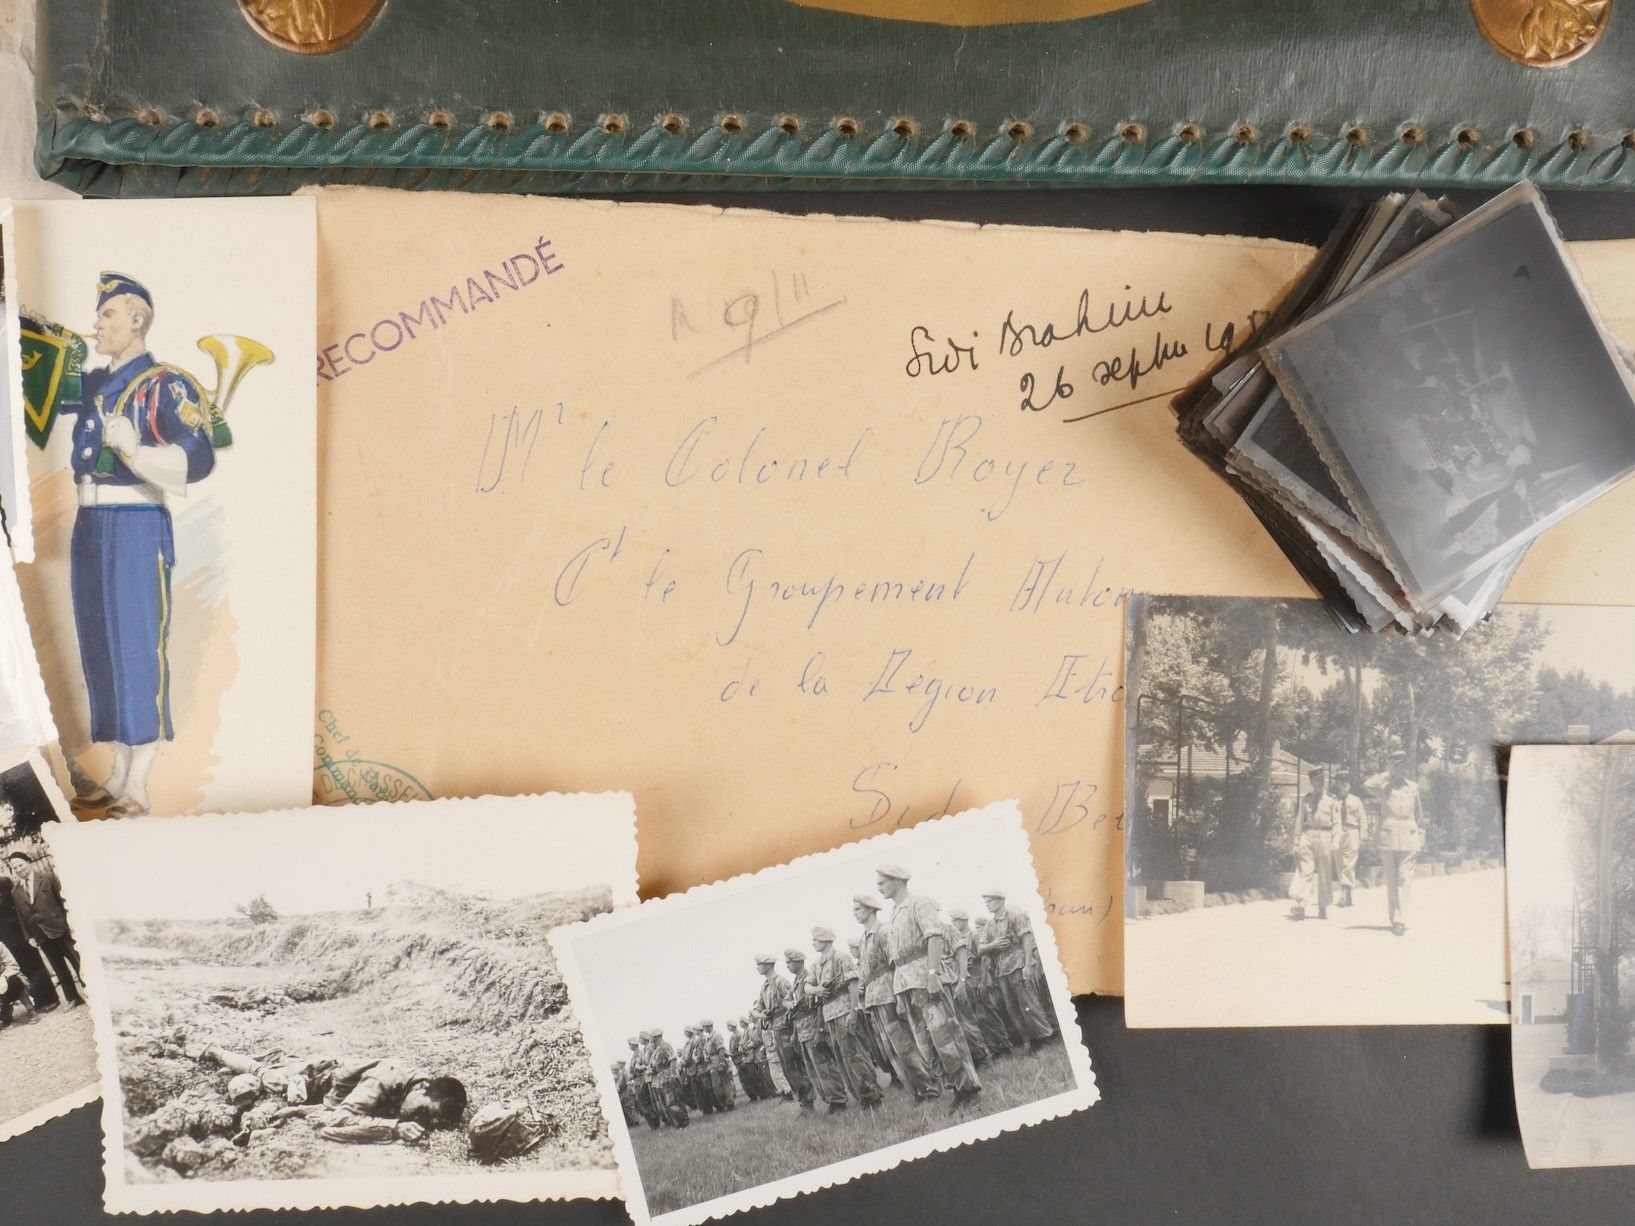 RECOMMANDÉ
Sidi Brahim
26 septbre 195
Mr le Colonel Royer
Ct le Groupement Auton
de la Légion Etra
Sidi Bel
Chef de
Command
CHASSE